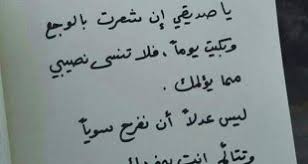 يا صديقي إن شعرت بالوجع
وبكيت يوماً، فلا تنسى نصيبي
مما يؤلمك.
ليس عدلاً أن نفرح سوياً
وتتألم أنت